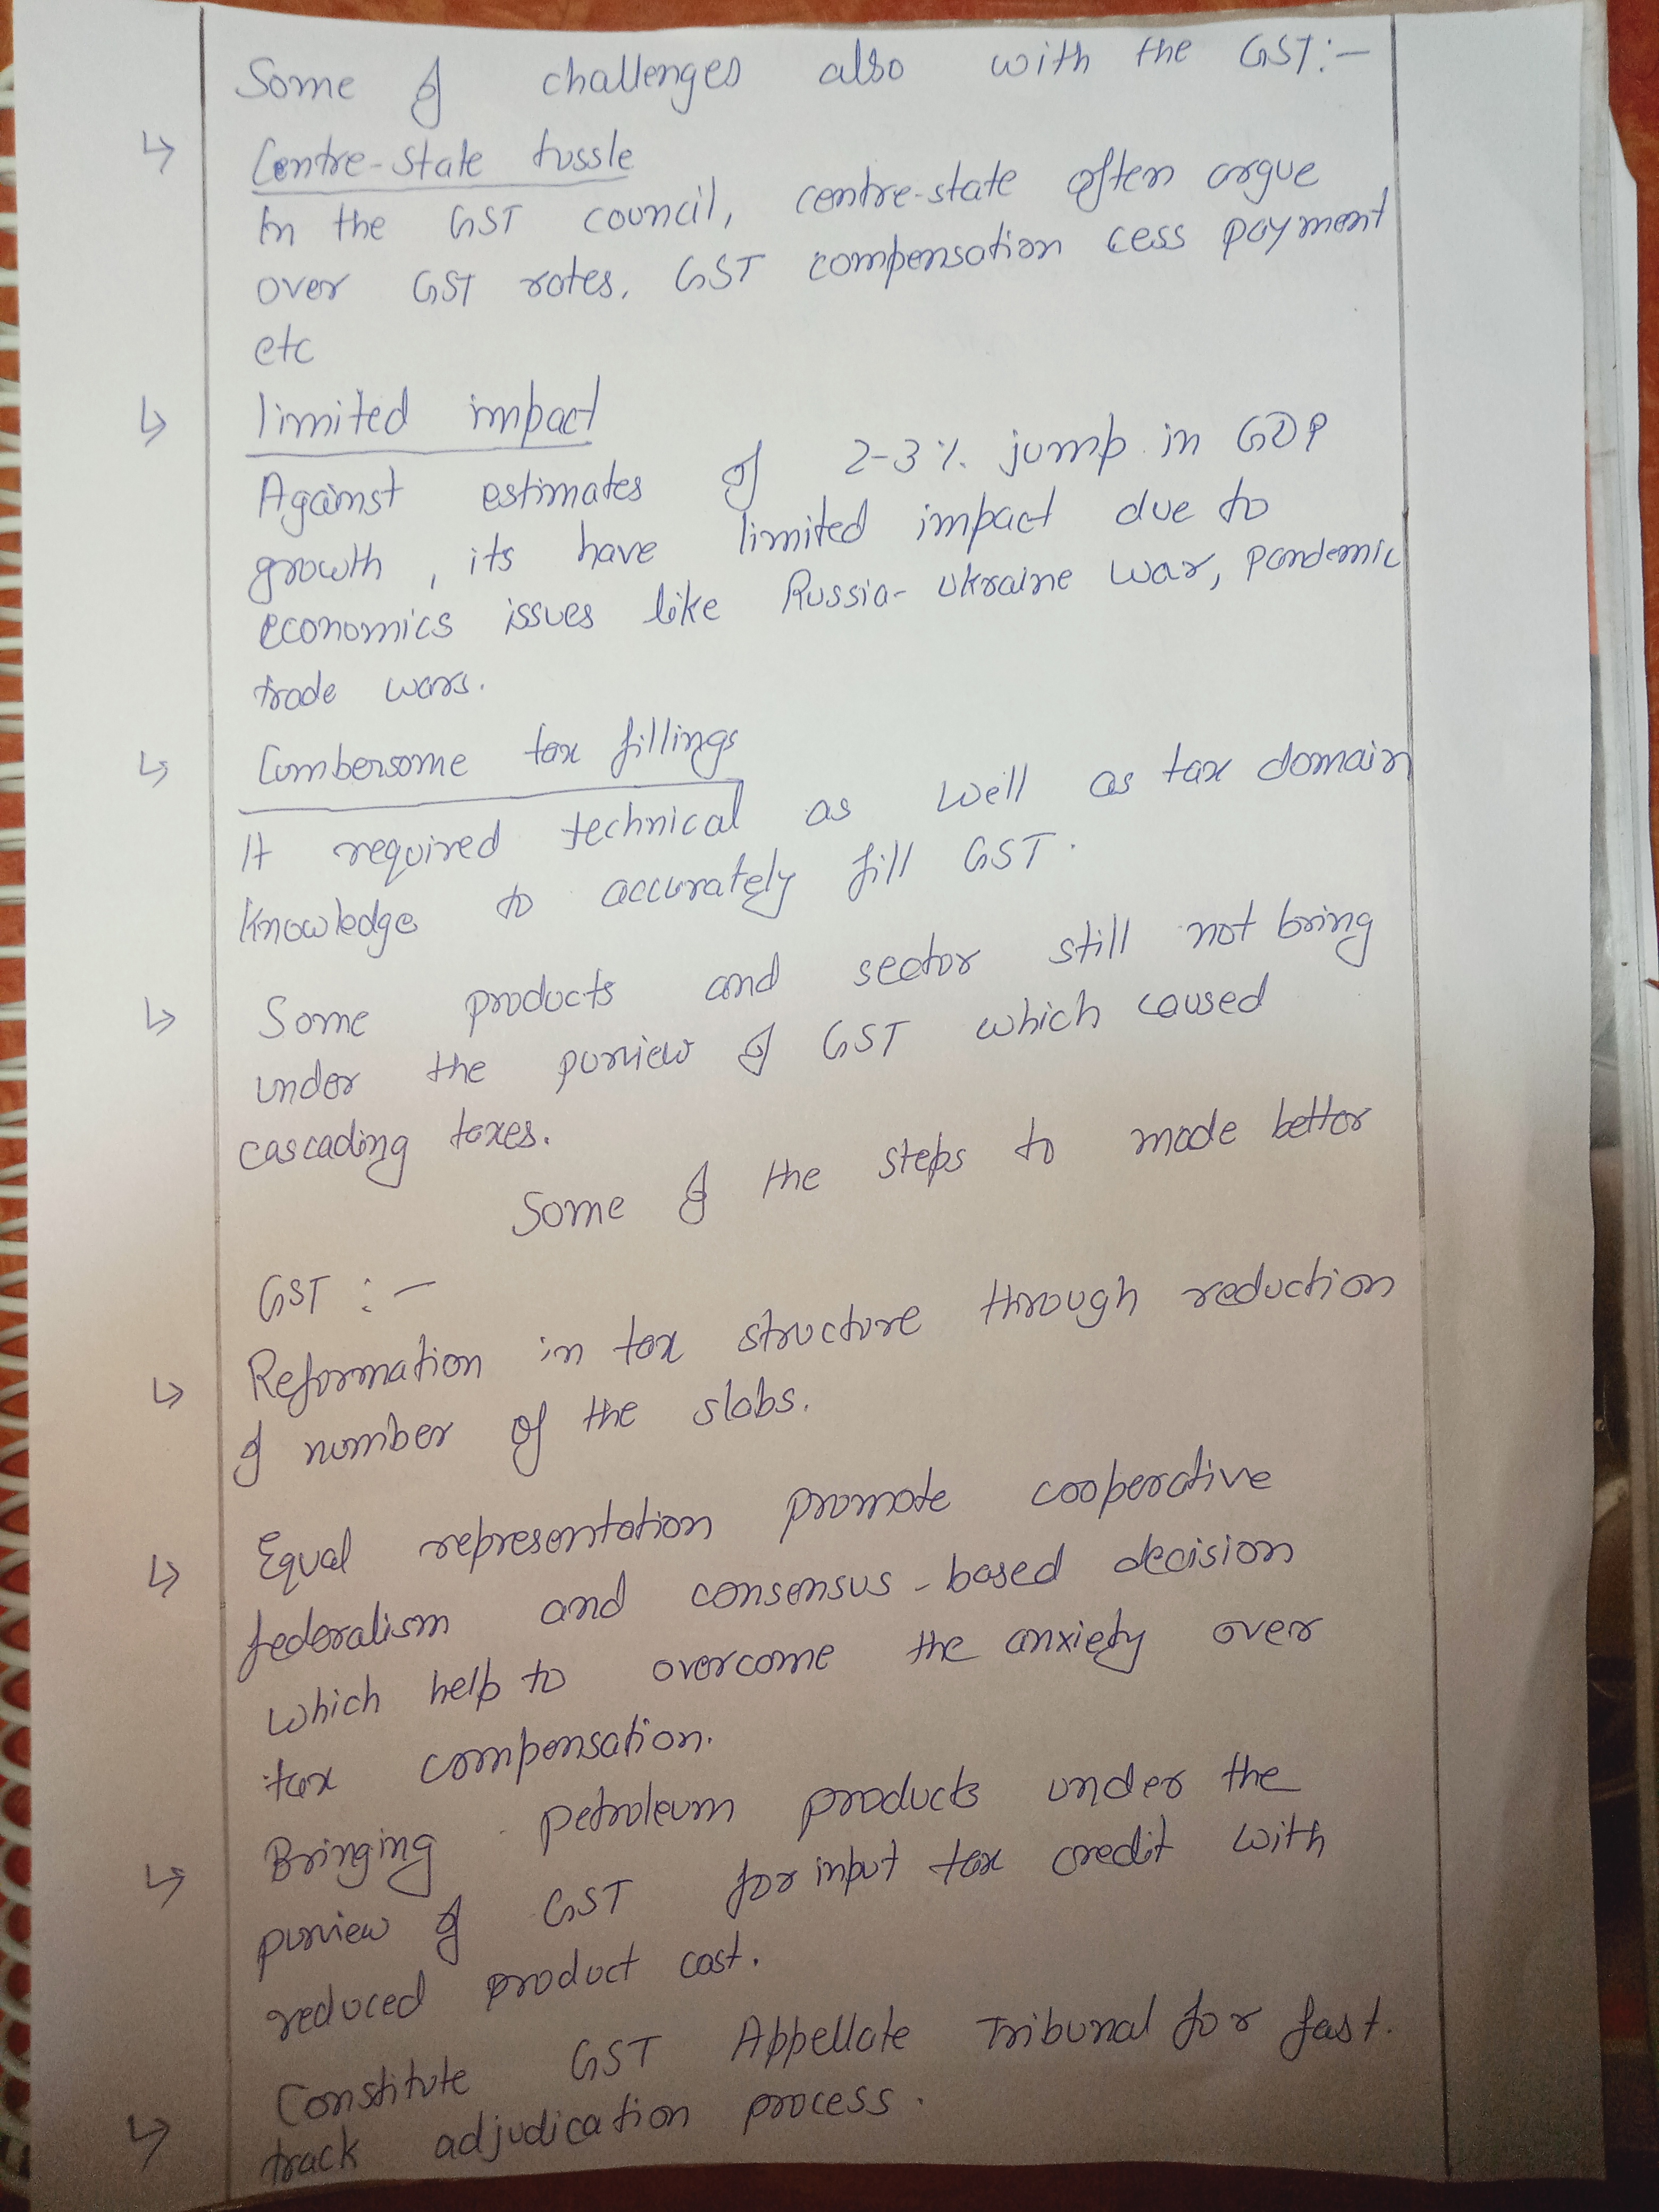 Some of challenges also with the GST:-
↳ Centre-State tussle
In the GST council, centre-state often argue
over GST rates, GST compensation cess payment
etc
↳ limited impact
Against estimates of 2-3% jump in GDP
growth, its have limited impact due to
economics issues like Russia-Ukraine war, pandemic
trade wars.
↳ Cumbersome tax fillings
It required technical as well as tax domain
knowledge to accurately fill GST.
↳ Some products and sector still not bring
under the purview of GST which caused
cascading taxes.
Some of the steps to made better
GST :-
↳ Reformation in tax structure through reduction
of number of the slabs.
↳ Equal representation promote cooperative
federalism and consensus-based decision
which help to overcome the anxiety over
tax compensation.
↳ Bringing petroleum products under the
purview of GST for input tax credit with
reduced product cost.
↳ Constitute GST Appellate Tribunal for fast.
track adjudication process.